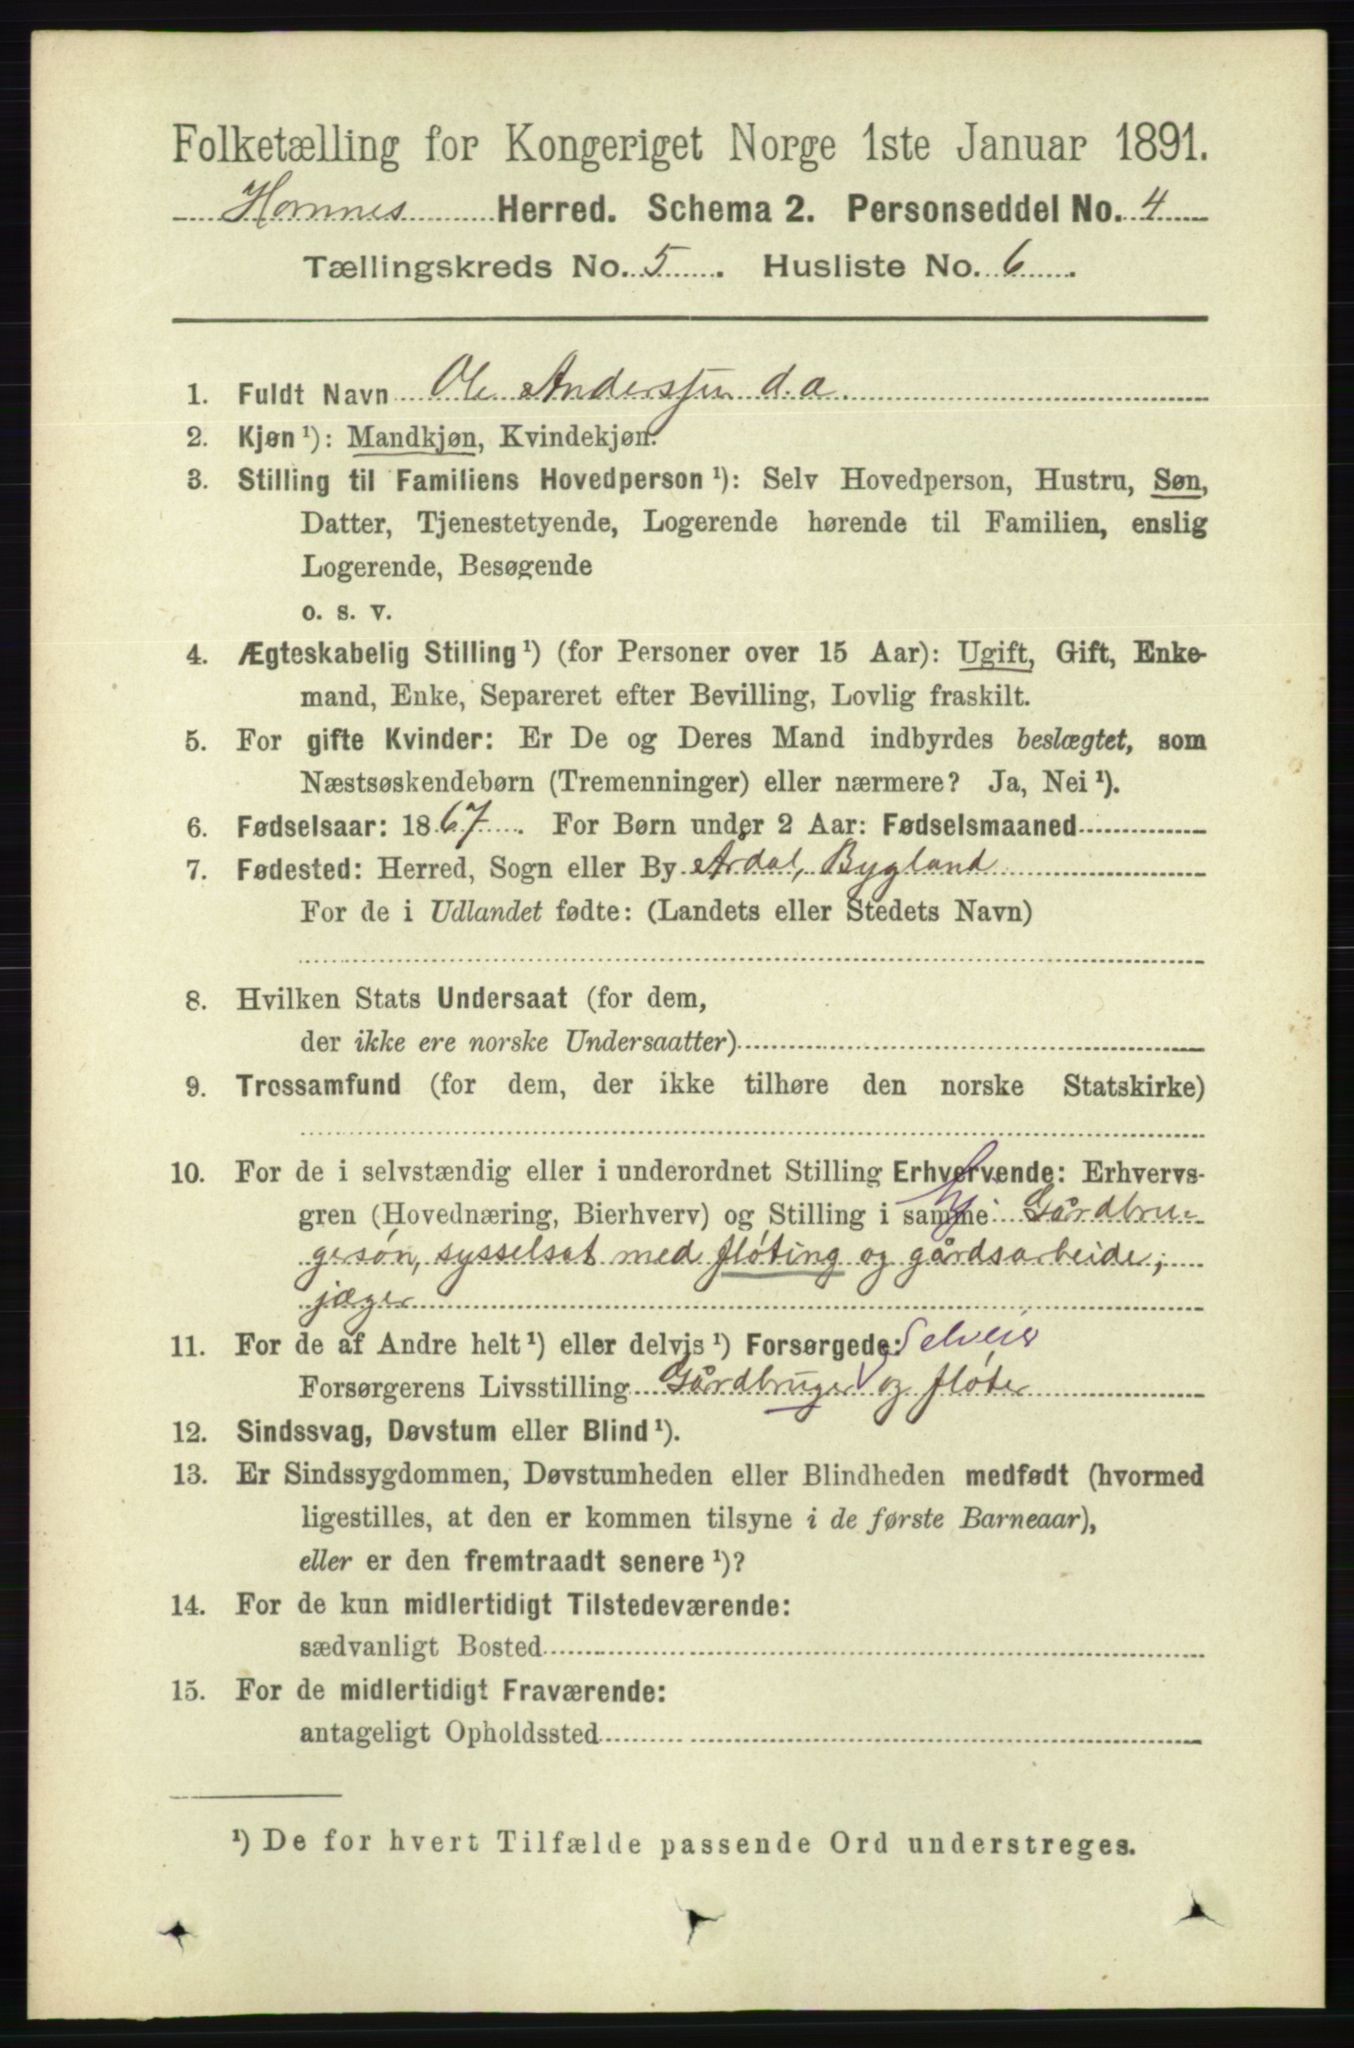 Folketælling for Kongeriget Norge 1ste Januar 1891.
Hornnes Herred. Schema 2. Personseddel No. 4
Tællingskreds No. 5. Husliste No. 6.
1. Fuldt Navn Ole Andersen d.a.
2. Kjøn ¹): Mandkjøn, Kvindekjøn.
3. Stilling til Familiens Hovedperson ¹): Selv Hovedperson, Hustru, Søn,
Datter, Tjenestetyende, Logerende hørende til Familien, enslig
Logerende, Besøgende
o. s. v.
4. Ægteskabelig Stilling ¹) (for Personer over 15 Aar): Ugift, Gift, Enke-
mand, Enke, Separeret efter Bevilling, Lovlig fraskilt.
5. For gifte Kvinder: Er De og Deres Mand indbyrdes beslægtet, som
Næstsøskendebørn (Tremenninger) eller nærmere? Ja, Nei ¹).
6. Fødselsaar: 1867. For Børn under 2 Aar: Fødselsmaaned
7. Fødested: Herred, Sogn eller By Årdal, Bygland
For de i Udlandet fødte: (Landets eller Stedets Navn)
8. Hvilken Stats Undersaat (for dem,
der ikke ere norske Undersaatter)
9. Trossamfund (for dem, der ikke tilhøre den norske Statskirke)
10. For de i selvstændig eller i underordnet Stilling Erhvervende: Erhvervs-
gren (Hovednæring, Bierhverv) og Stilling i samme Gårdbru-
gersøn, sysselsat med fløting og gårdsarbeide;
jæger
11. For de af Andre helt ¹) eller delvis ¹) Forsørgede: Selveier
Forsørgerens Livsstilling Gårdbruger og fløter
12. Sindssvag, Døvstum eller Blind ¹).
13. Er Sindssygdommen, Døvstumheden eller Blindheden medfødt (hvormed
ligestilles, at den er kommen tilsyne i de første Barneaar),
eller er den fremtraadt senere ¹)?
14. For de kun midlertidigt Tilstedeværende:
sædvanligt Bosted
15. For de midlertidigt Fraværende:
antageligt Opholdssted
¹) De for hvert Tilfælde passende Ord understreges.